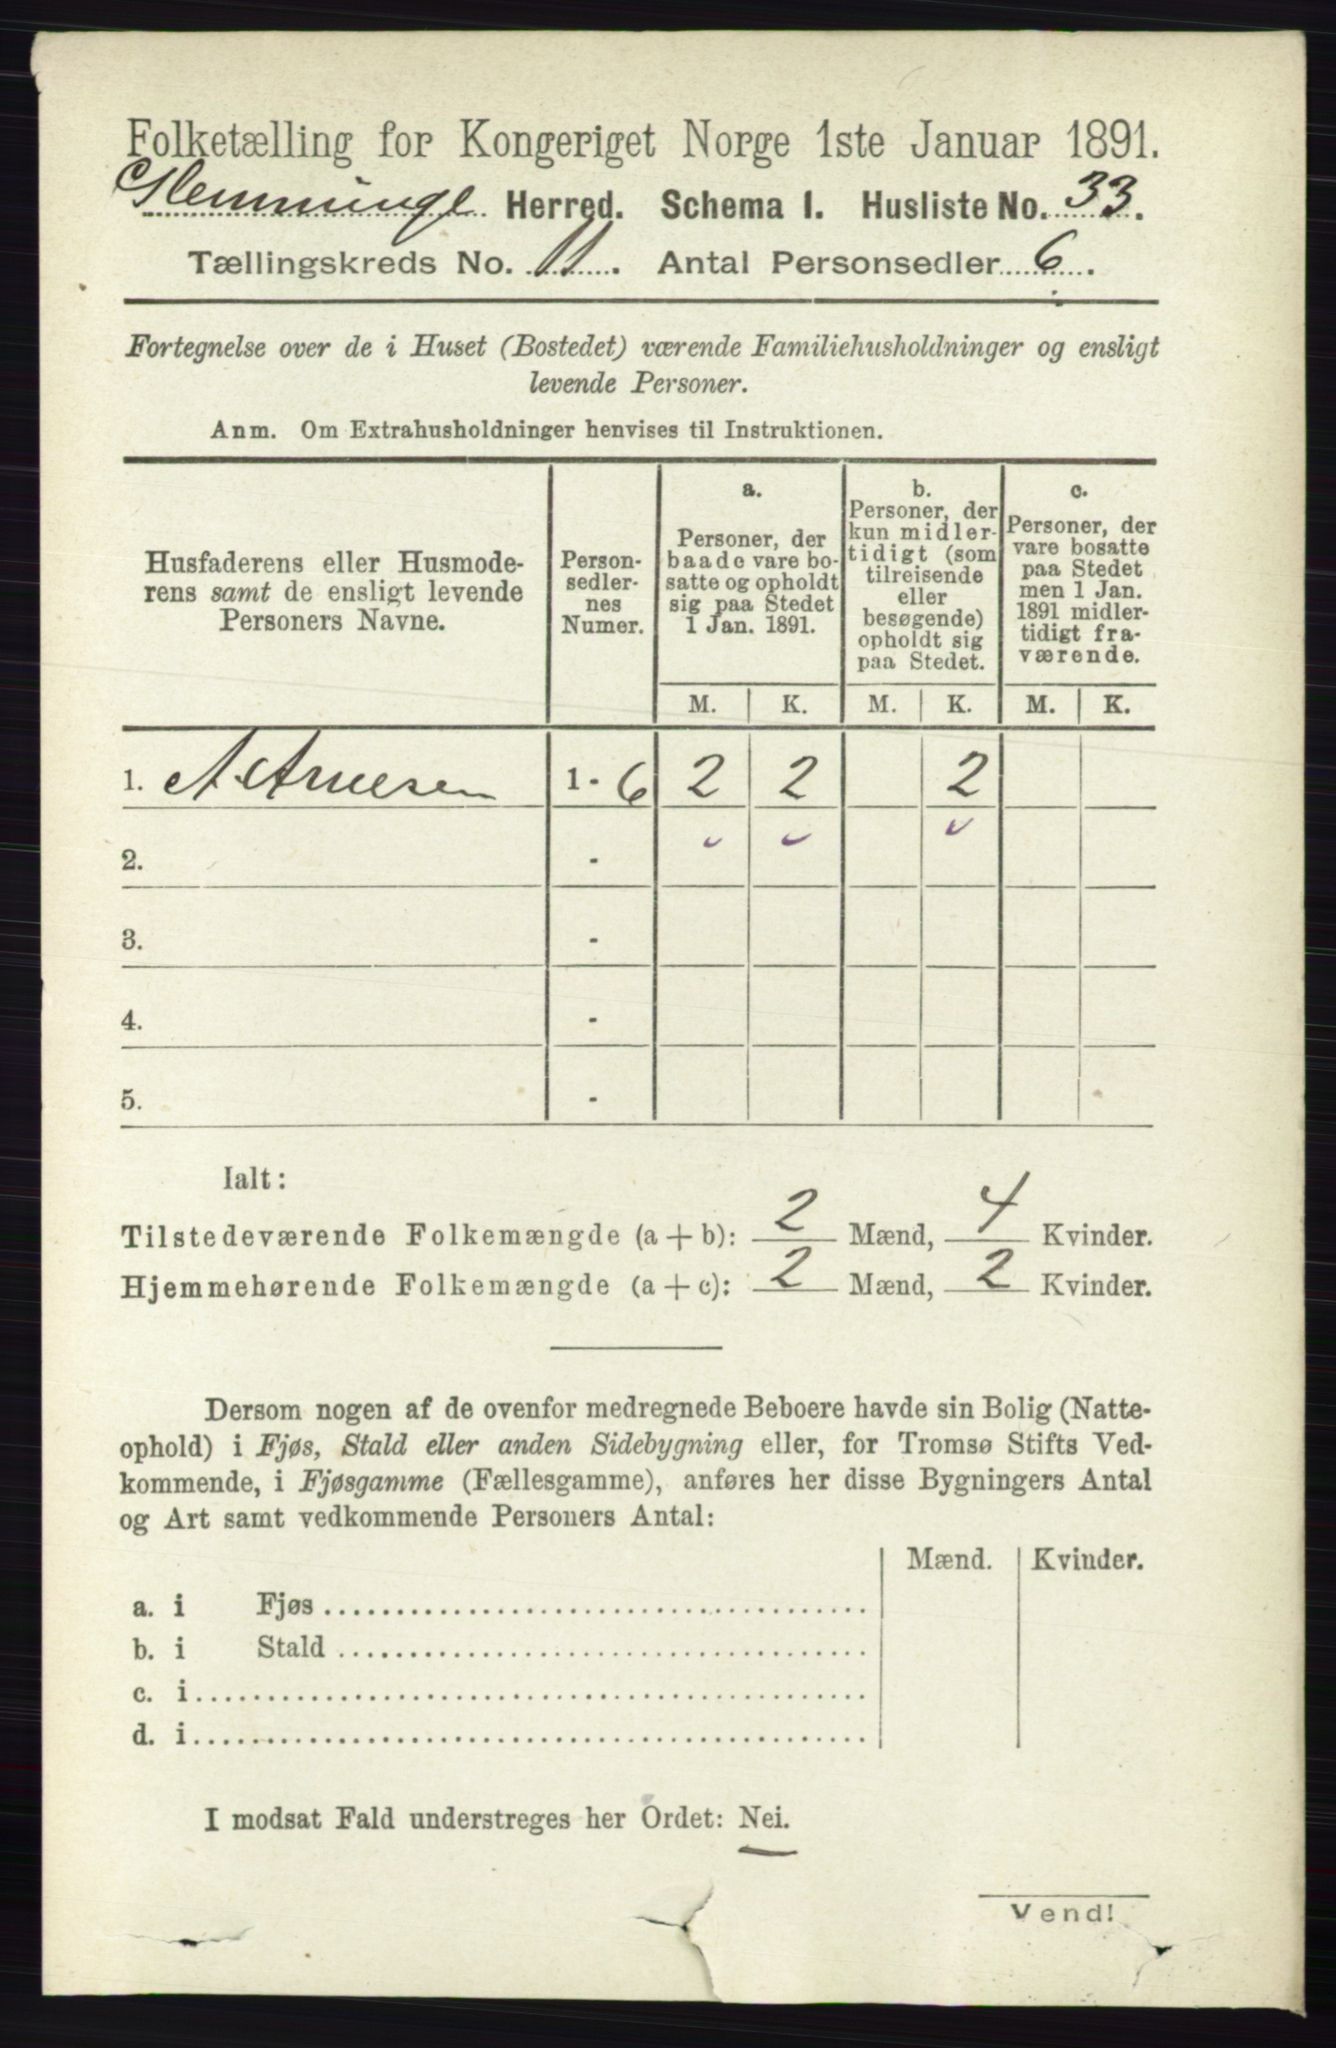 Folketælling for Kongeriget Norge 1ste Januar 1891.
Glemminge Herred. Schema I. Husliste No. 33.
Tællingskreds No. 11. Antal Personsedler 6.
Fortegnelse over de i Huset (Bostedet) værende Familiehusholdninger og ensligt
levende Personer.
Anm. Om Extrahusholdninger henvises til Instruktionen.
Husfaderens eller Husmode-
rens samt de ensligt levende
Personers Navne.
Person-
sedler-
nes
Numer.
a.
Personer, der
baade vare bo-
satte og opholdt
sig paa Stedet
1 Jan. 1891.
b.
Personer, der
kun midler-
tidigt (som
tilreisende
eller
besøgende)
opholdt sig
paa Stedet.
c.
Personer, der
vare bosatte
paa Stedet
men 1 Jan.
1891 midler-
tidigt fra-
værende.
M. K. M. K. M. K.
1. A Arnesen 1 - 6 2 2 2
2. -
3. -
4. -
5. -
Ialt:
Tilstedeværende Folkemængde (a + b): 2 Mænd, 4 Kvinder.
Hjemmehørende Folkemængde (a + c): 2 Mænd, 2 Kvinder.
Dersom nogen af de ovenfor medregnede Beboere havde sin Bolig (Natte-
ophold) i Fjøs, Stald eller anden Sidebygning eller, for Tromsø Stifts Ved-
kommende, i Fjøsgamme (Fællesgamme), anføres her disse Bygningers Antal
og Art samt vedkommende Personers Antal:
Mænd. Kvinder.
a. i Fjøs
b. i Stald
c. i
d. i
I modsat Fald understreges her Ordet: Nei.
Vend!